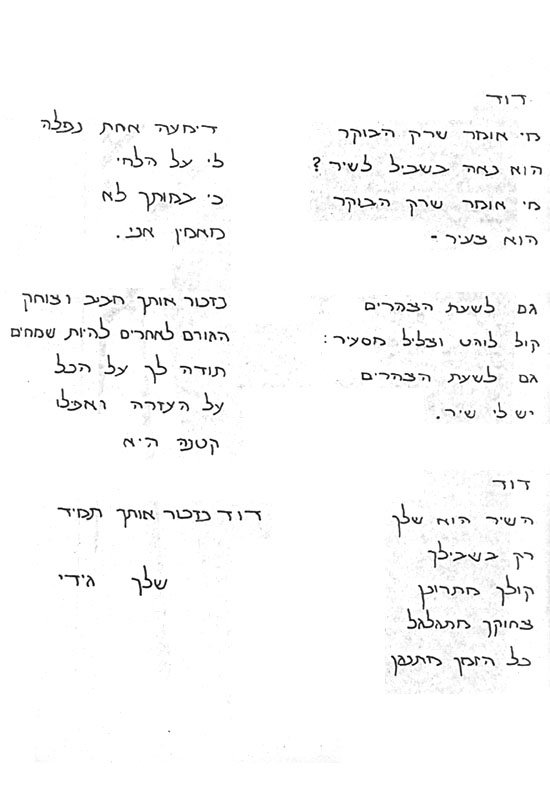 דוד
מי אומר שרק הבוקר
הוא נאה בשביל לשיר?
מי אומר שרק הבוקר
הוא צעיר -
גם לשעת הצהרים
קול לוהט וצליל מסעיר:
גם לשעת הצהרים
יש לי שיר.
דוד
השיר הוא שלך
רק בשבילך
קולך מתרונן
צחוקך מתגלגל
כל הזמן מתנגן
דימעה אחת נפלה
לי על הלחי
כי במותך לא
מאמין אני.
נזכור אותך חביב וצוחק
הגורם לאחרים להיות שמחים
תודה לך על הכל
על העזרה ואפילו
קטנה היא
דוד נזכור אותך תמיד
שלך גידי